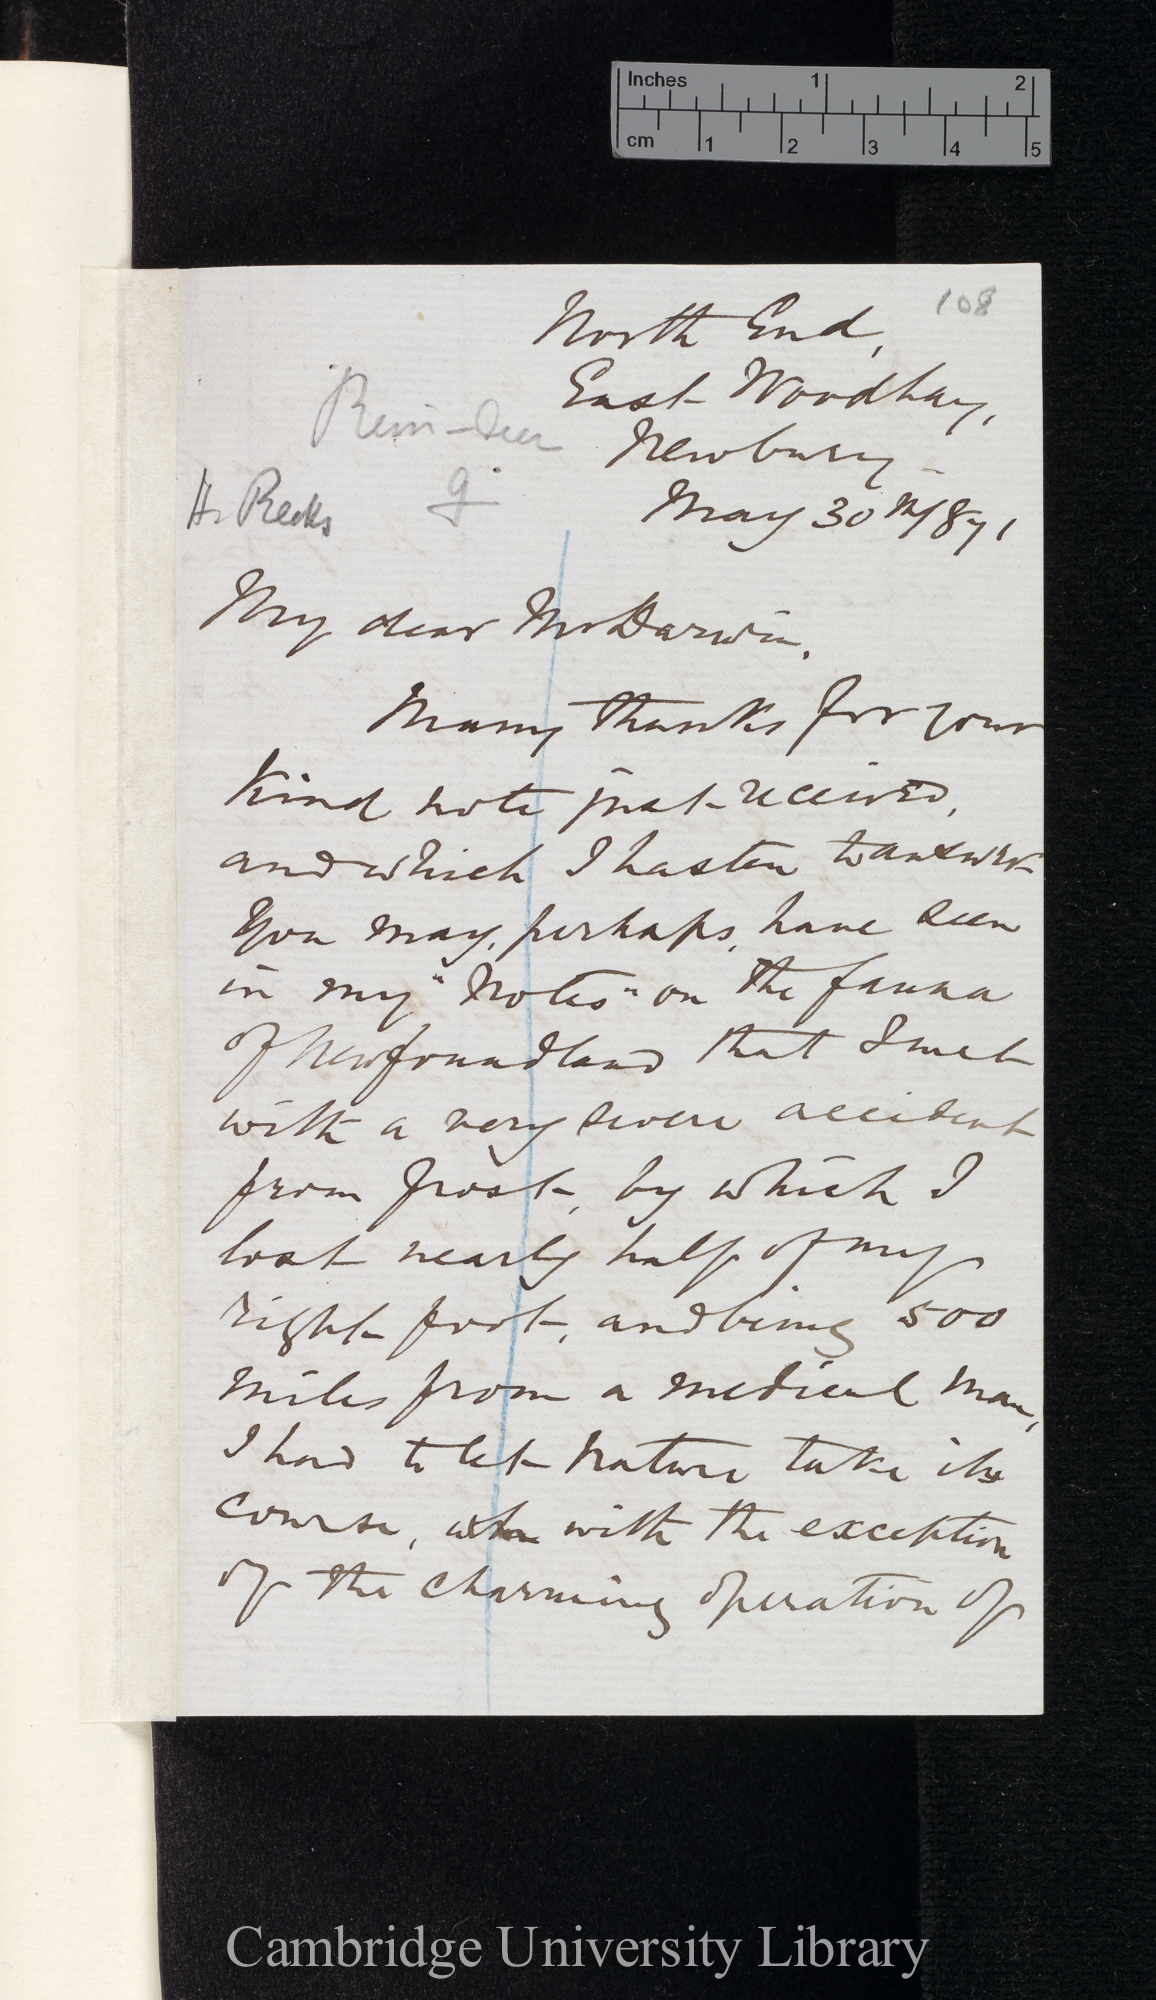 Inches 1 2
cm 1 2 3 4 5
108
North End,
East Woodhay,
Newbury
May 30th/871
Rein-deer
H. Reeks
My dear Mr Darwin,
Many thanks for your
kind note just received,
and which I hasten to answer
You may, perhaps, have seen
in my "Notes" on the fauna
of Newfoundland that I met
with a very severe accident
from frost, by which I
lost nearly half of my
right foot, and being 500
miles from a medical man,
I had to let Nature take its
course, with the exception
of the charming operation of
Cambridge University Library